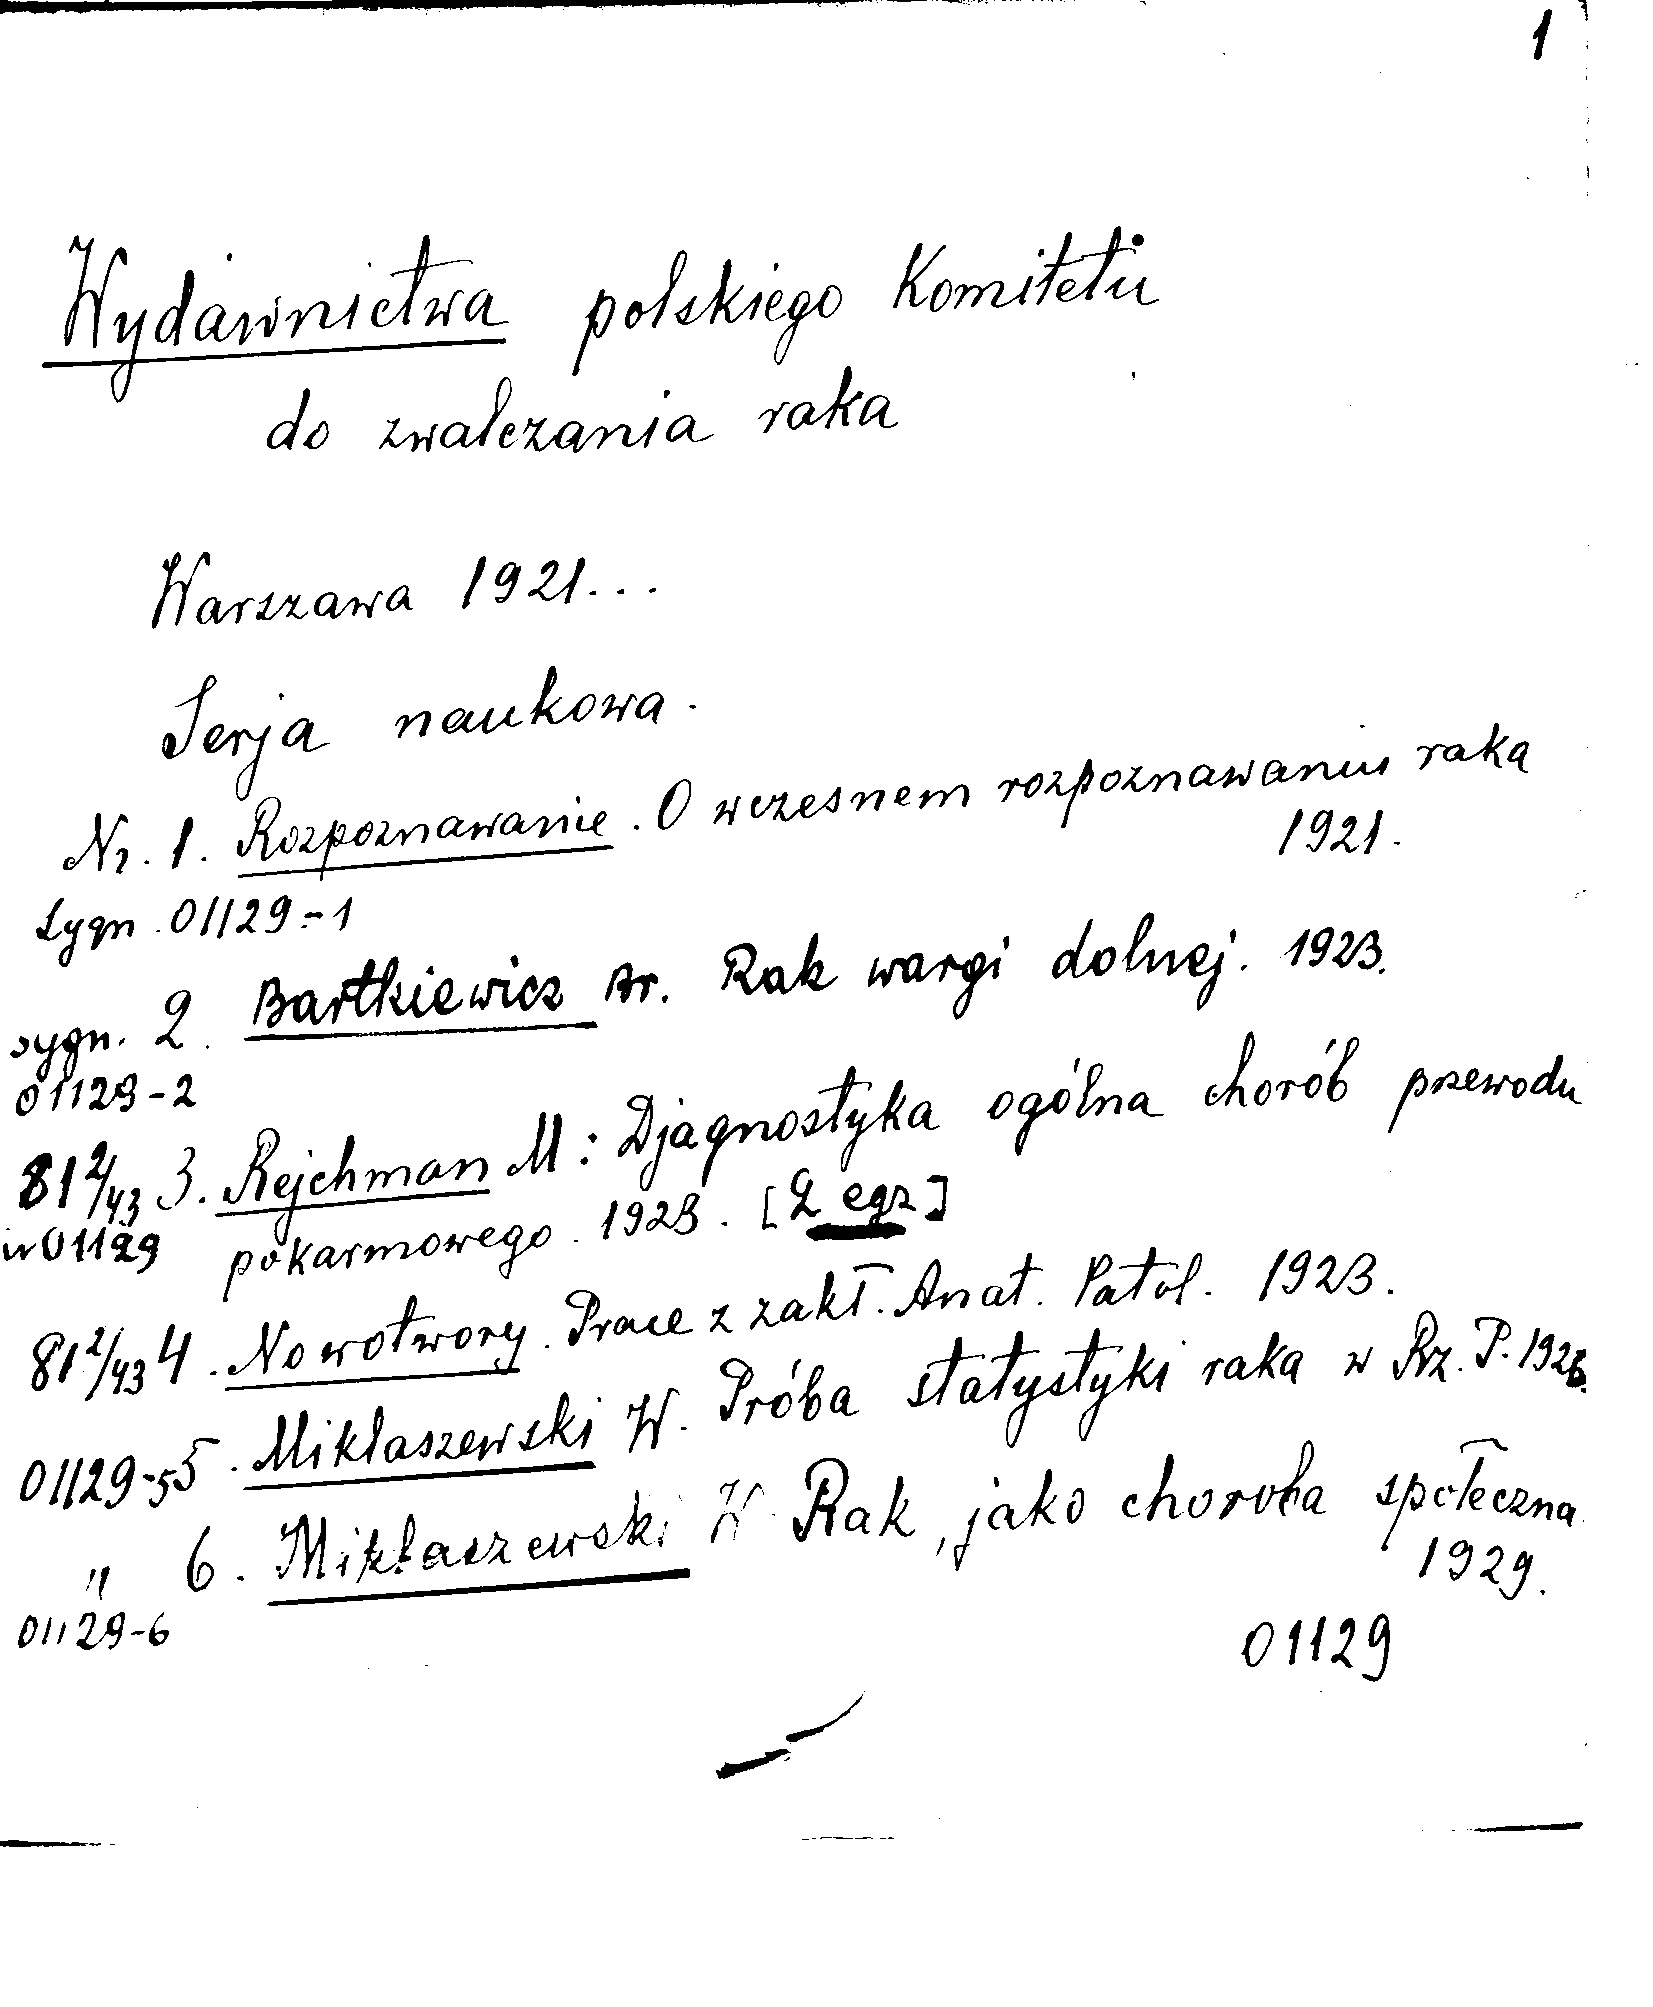 1
Wydawnictwa polskiego Komitetu
do zwalczania raka
Warszawa 1921...
Serja naukowa.
Nr. 1. Rozpoznawanie. O wczesnem rozpoznawaniu raka
1921.
Sygn. 01129-1
sygn. 2. Bartkiewicz Br. Rak wargi dolnej. 1923.
01129-2
81 2/43 3. Rejchman M: Djagnostyka ogólna chorób przewodu
w 01129 pokarmowego. 1923. [2 egz]
81 2/43 4. Nowotwory. Prace z zakł. Anat. Patol. 1923.
01129-5 5. Mikłaszewski W. Próba statystyki raka w Rz. P.
" 6. Mikłaszewski W Rak, jako choroba społeczna
1929.
01129-6
01129